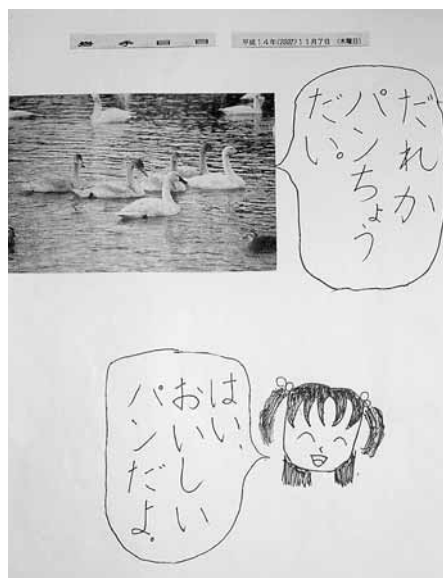 平成14年(2002)11月7日 (木曜日)
だれか
パンちょう
だい。
はい、
おいしい
パンだよ。